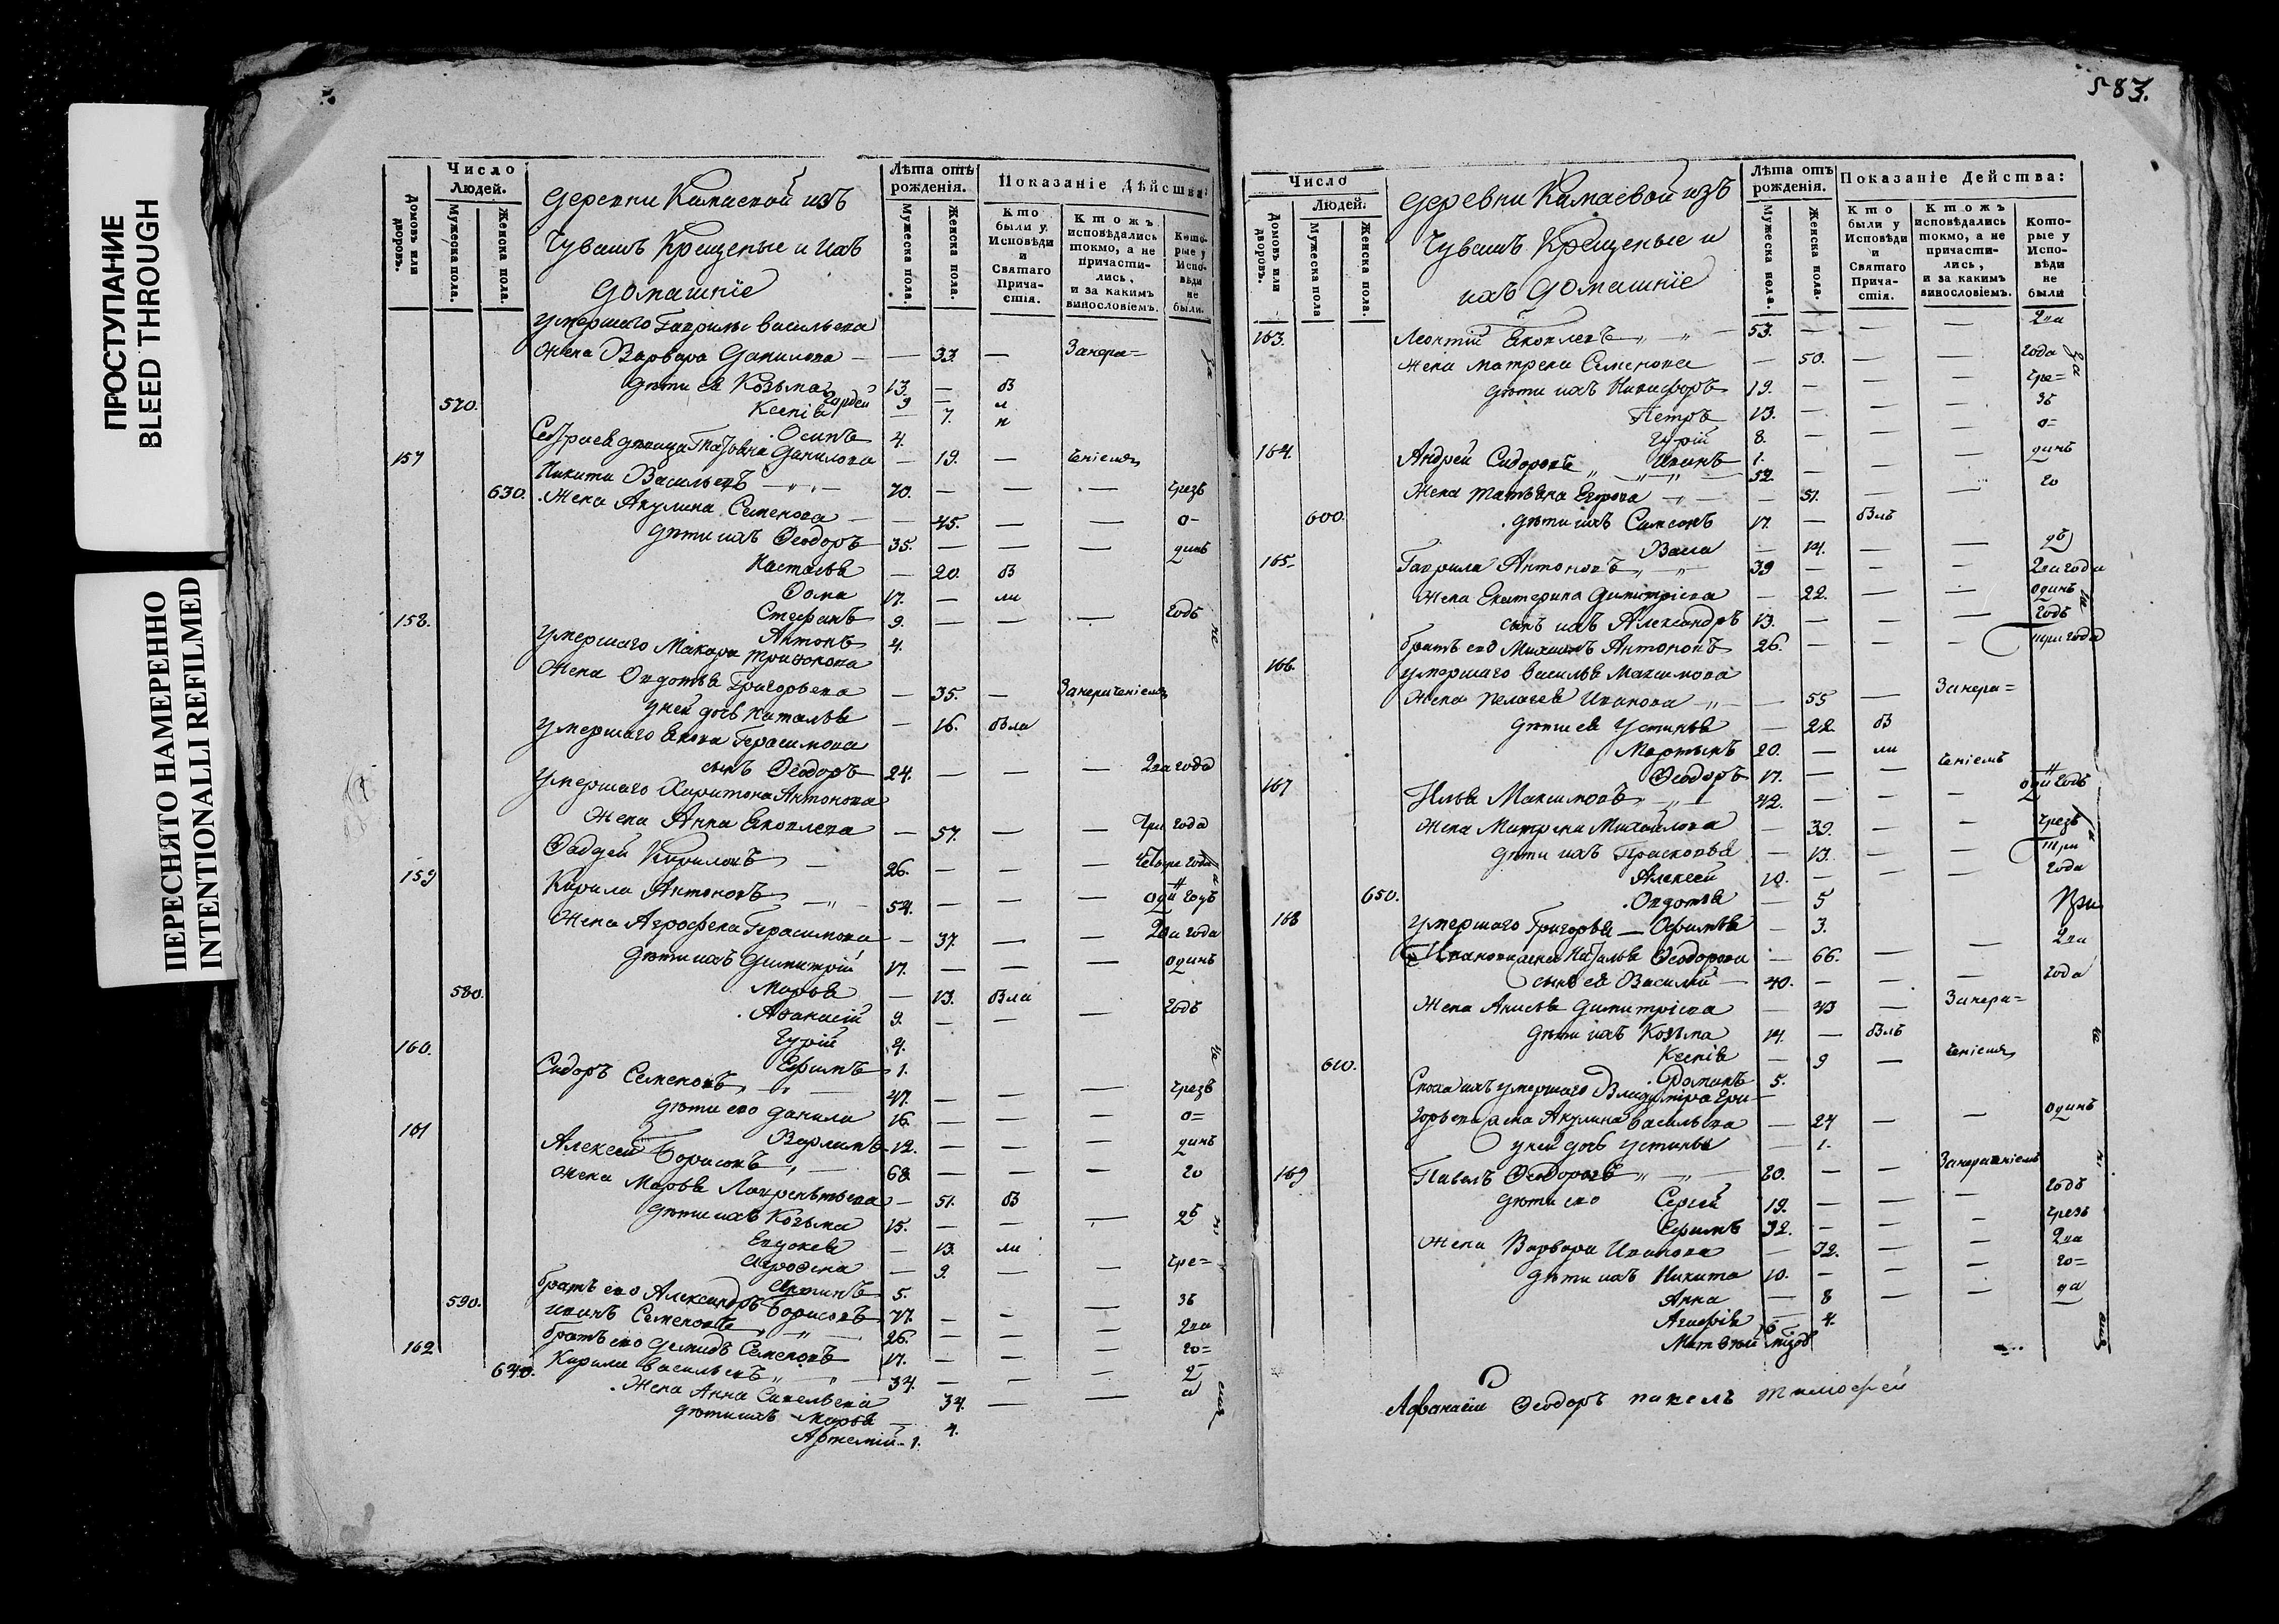 ПРОСТУПАНИЕ
BLEED THROUGH
ПЕРЕСНЯТО НАМЕРЕННО
INTENTIONALLI REFILMED
Число
Людей.
Домовъ или дворовъ.
Мужеска пола.
Женска пола.
деревни Камаевой изъ
Чувашъ Крещеные и ихъ
домашніе
Лѣта отъ рожденія.
Мужеска пола.
Женска пола.
Показаніе Дѣйства:
Кто были у Исповѣди и Святаго Причастія.
Ктожъ исповѣдались токмо, а не причастились, и за какимъ винословіемъ.
Которые у Исповѣди не были.
умершаго Гаврилы Васильева
жена Варвара Данилова — — 33. — Занера=
дѣти ея Козьма 13. — бы
570. Гордей 9 — л
Ксенія — 7. и
Осипъ 4.
157 Данилова — 19. — ченіемъ
Никита Васильевъ 70. — — — чрезъ
630. жена Акулина Семенова — 45. — — о-
дѣти ихъ Ѳеодоръ 35. — — — динъ
Наталья — 20. бы
Ѳома 17. — ли
158. Стефанъ 9. — — — годъ
Антонъ 4.
умершаго Макара Трифонова
жена Овдотья Григорьева — 35. — Занераченіемъ
у ней дочь Наталья — 16. была
умершаго Якова Герасимова
сынъ Ѳеодоръ 24. — — — два года
умершаго Харитона Антонова
жена Анна Яковлева — 57. — — три года
Фаддей Кириловъ — 26. — — — четыре года
159 Кирила Антоновъ 54. — — — годъ
жена Агрофена Герасимова — 37. — — два года
дѣти ихъ Димитрій 17. — — — одинъ
580. Марья — 13. была
Аѳанасій 9. — — — годъ
Гурій 4.
160. Ефимъ 1.
Сидоръ Семеновъ 47. — — — чрезъ
дѣти его Данила 16 — — — о=
161 Варламъ 12. — — — динъ
Алексей Борисовъ 68. — — — го
жена Марья Лаврентьева — 51. бы
дѣти ихъ Козьма 15. — — — дъ
Евдокея — 13. ли
Агрофена — 9. — — чре=
5.
590. братъ его Александръ Борисовъ 77. — — — зъ
Иванъ Семеновъ 26. — — — два
братъ его Демидъ Семеновъ 17. — — — го=
162 Кирила Васильевъ 34. — — — д
640. жена Анна Савельева 34. — — а
дѣти ихъ Марья — 4.
Артемій 1.
583.
Число
Людей.
Домовъ или дворовъ.
Мужеска пола
Женска пола.
деревни Камаевой изъ
Чувашъ Крещеные и
ихъ домашніе
Лѣта отъ рожденія.
Мужеска пола.
Женска пола.
Показаніе Действа:
Кто были у Исповѣди и Святаго Причастія.
Ктожъ исповѣдались токмо, а не причастились, и за какимъ винословіемъ.
Которые у Исповѣди не были
163. Леонтій Яковлевъ 53. — — — два
жена Матрена Семенова — 50. — — года
дѣти ихъ Никифоръ 19. — — — чре=
Петръ 13. — — — зъ
Гурій 8. — — — о=
164. Иванъ 1. динъ
Андрей Сидоровъ 52. — — — го
жена Татьяна Егорова — 51. — —
600. дѣти ихъ Самсонъ 17. — былъ
Васса — 14. — — дъ
165. Гаврила Антоновъ 39 — — — два года
жена Екатерина Димитріева — 22. — — одинъ
сынъ ихъ Александръ 13. — — — годъ
братъ его Михаилъ Антоновъ 26. — — — три года
166. умершаго Василья Максимова
жена Пелагея Иванова — 55 — Занера=
дѣти ея Устинья — 22. бы
Мартынъ 20. — ли
Ѳеодоръ 17. — — ченіемъ
167 Илья Максимовъ 42. — — — годъ
жена Матрена Михайлова — 39. — — чрезъ
дѣти ихъ Прасковья — 13. — — три
Алексей 10. — — — года
650. Овдотья — 5
168 Офимья — 3.
умершаго Григорья
Иванова жена Наталья Ѳеодорова — 66. — — два
сынъ ея Василій 40. — — — года
жена Анисья Димитріева — 43 — Занера=
дѣти ихъ Козьма 14. — былъ
610. Ксенія — 9 — ченіемъ
Романъ 5.
Сноха ихъ умершаго Владимира Гри-
горьева жена Акулина Васильева — 24 — — одинъ
у ней дочь Устинья — 1.
169 Павелъ Ѳеодоровъ 60. — — Занераченіемъ
дѣти его Сергей 19. — — — годъ
Ефимъ 32. — — — чрезъ
жена Варвара Иванова — 32. — — два
дѣти ихъ Никита 10. — — — го=
Анна — 8 — — да
— 4.
Матвей
Афанасій Ѳеодоръ Павелъ Тимофей